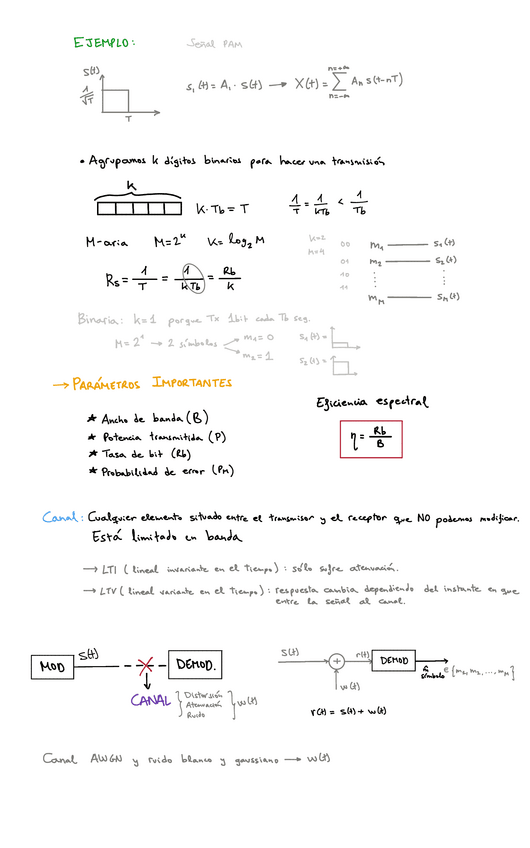 EJEMPLO: Señal PAM
S(t)
1/√T
T
s₁(t) = A₁ · s(t) → X(t) = ∑ n=-∞ n=+∞ Aₙ s(t-nT)
• Agrupamos k dígitos binarios para hacer una transmisión
k
k·Tb = T 1/T = 1/kTb < 1/Tb
M-aria M=2ᵏ K= log₂ M
Rs = 1/T = 1/k Tb = Rb/k
k=2
M=4
00 m₁ S₁(t)
01 m₂ S₂(t)
10 ⋮ ⋮
11 m_M S_M(t)
Binaria: k=1 porque Tx 1bit cada Tb seg.
M= 2¹ → 2 símbolos m₁= 0
m₂= 1
S₁(t) =
S₂(t) =
→ PARÁMETROS IMPORTANTES
★ Ancho de banda (B)
★ Potencia transmitida (P)
★ Tasa de bit (Rb)
★ Probabilidad de error (P_M)
Eficiencia espectral
η = Rb/B
Canal: Cualquier elemento situado entre el transmisor y el receptor que NO podemos modificar.
Está limitado en banda
→ LTI (lineal invariante en el tiempo): sólo sufre atenuación.
→ LTV (lineal variante en el tiempo): respuesta cambia dependiendo del instante en que
entre la señal al canal.
MOD S(t) DEMOD.
CANAL
Distorsión
Atenuación
Ruido
w(t)
S(t) + r(t) DEMOD
w(t)
símbolo ∈ {m₁, m₂, ..., m_M}
r(t) = s(t) + w(t)
Canal AWGN y ruido blanco y gaussiano → w(t)